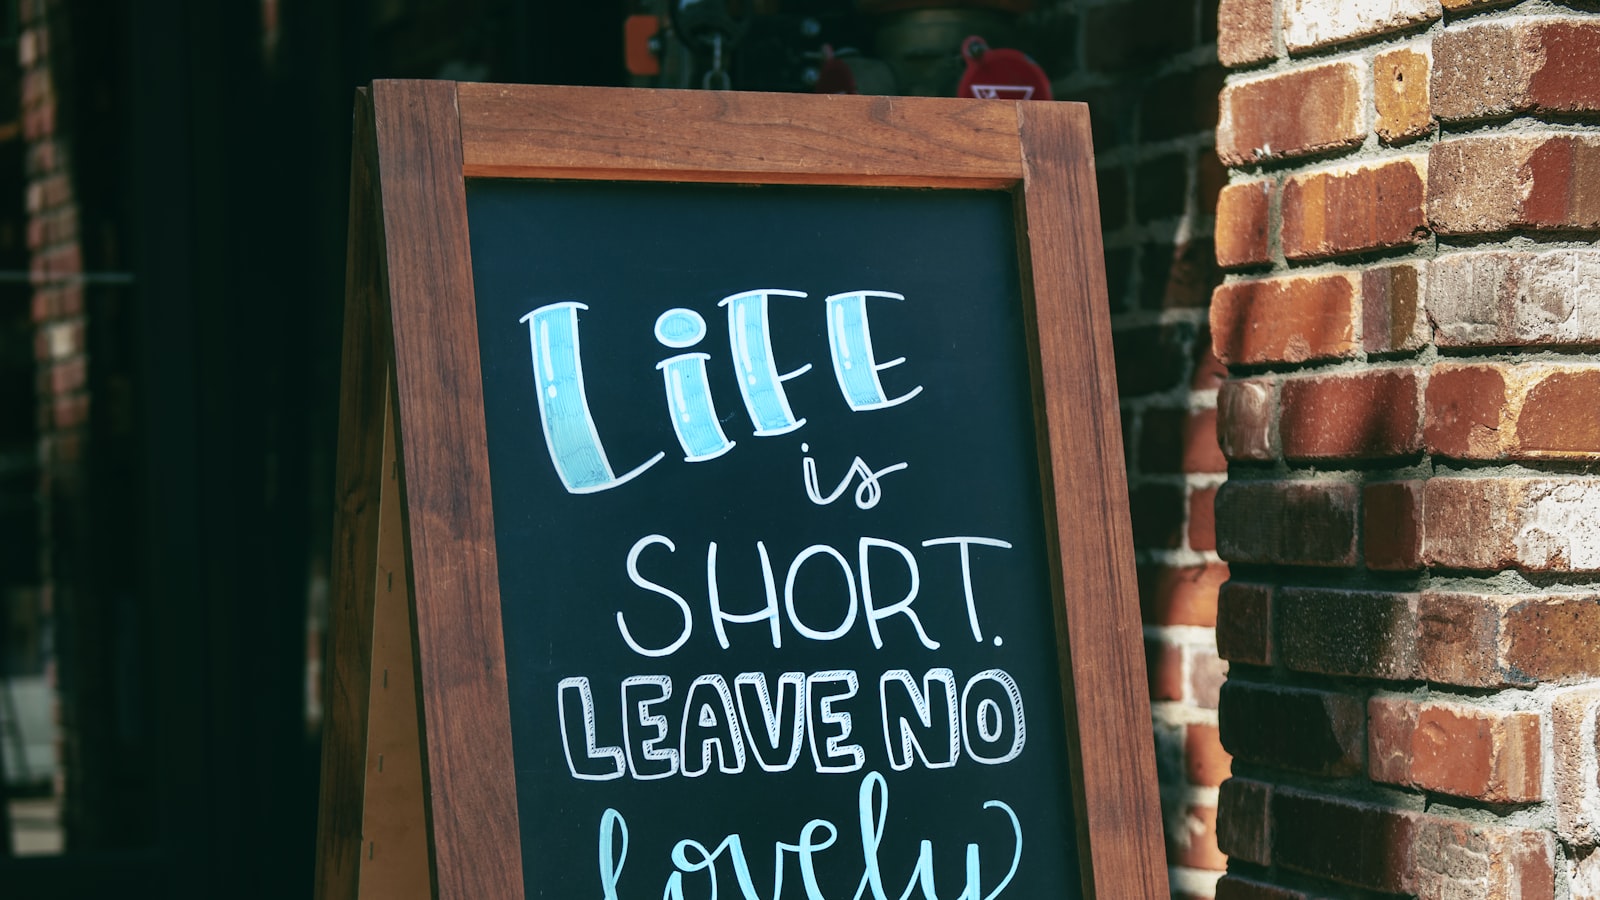 LiFE
is
SHORT.
LEAVE NO
lovely